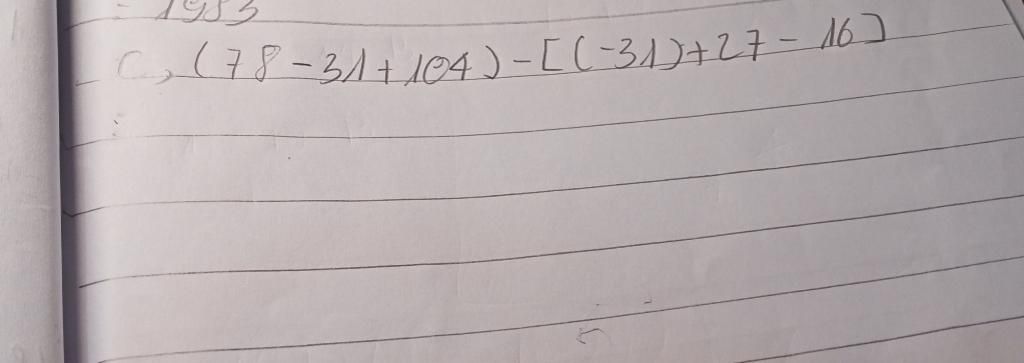 = 1983
C, (78 - 31 + 104) - [(-31) + 27 - 16]